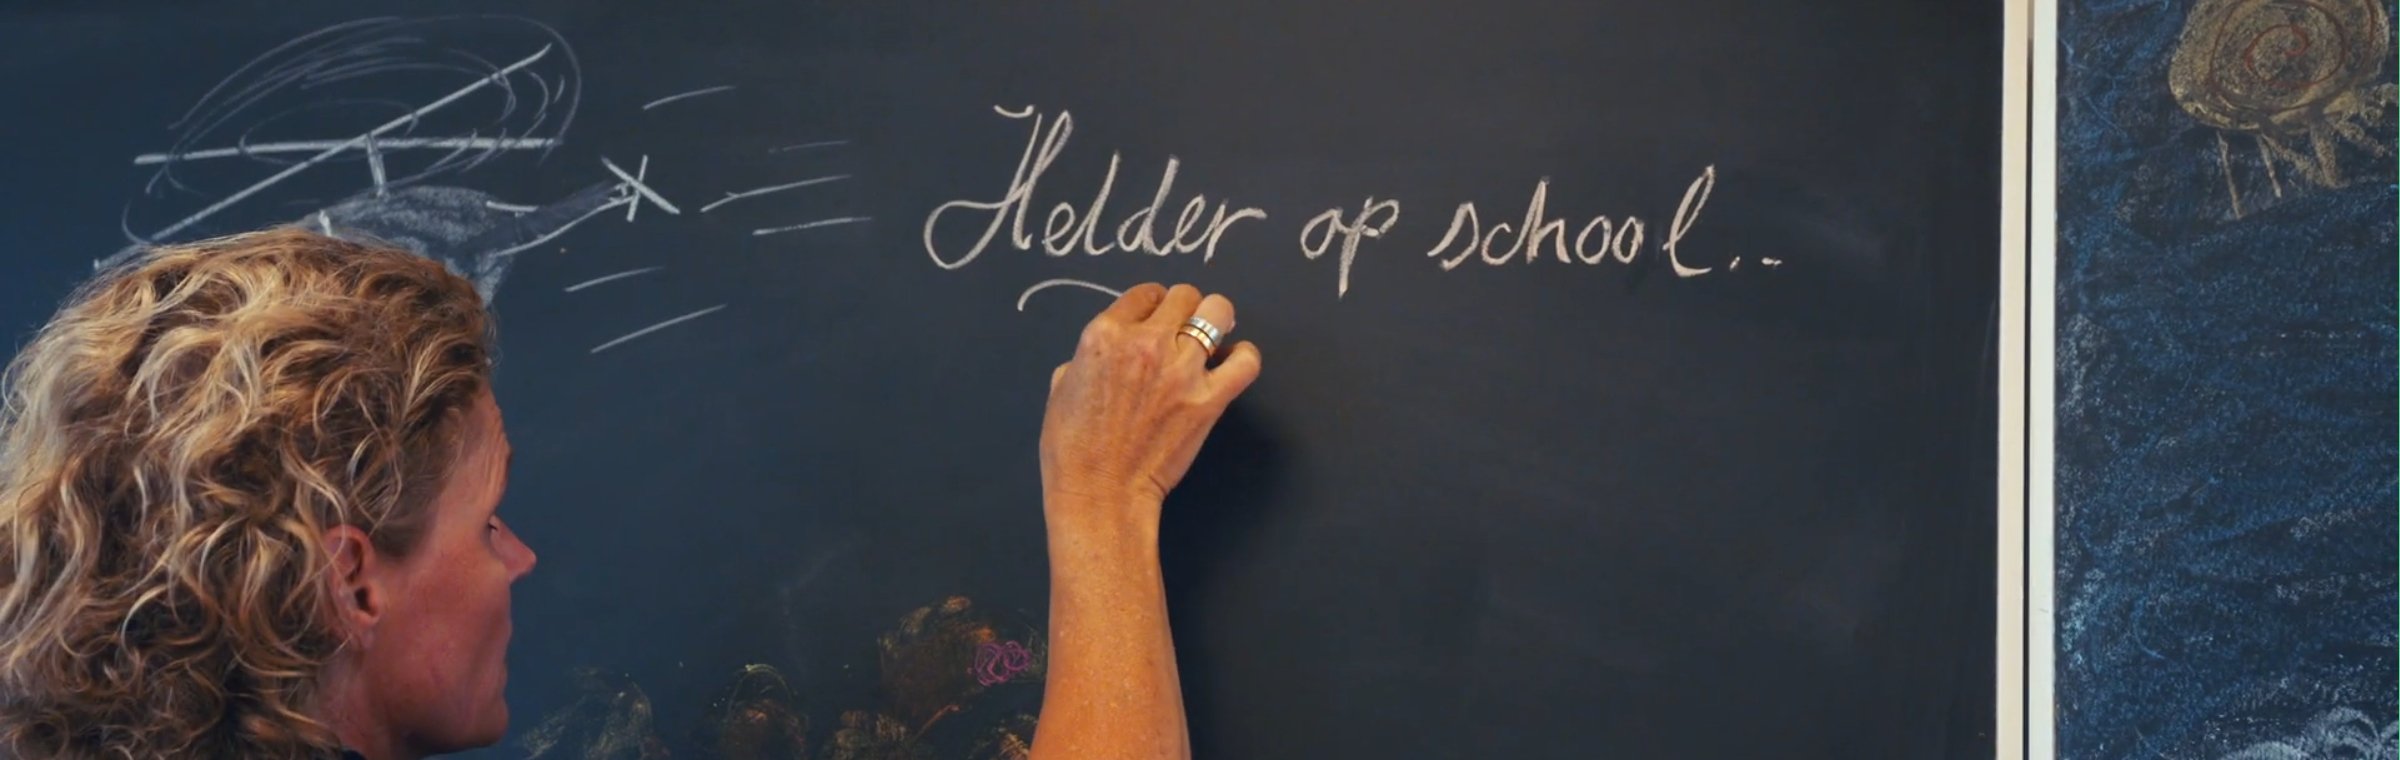 Helder op school..